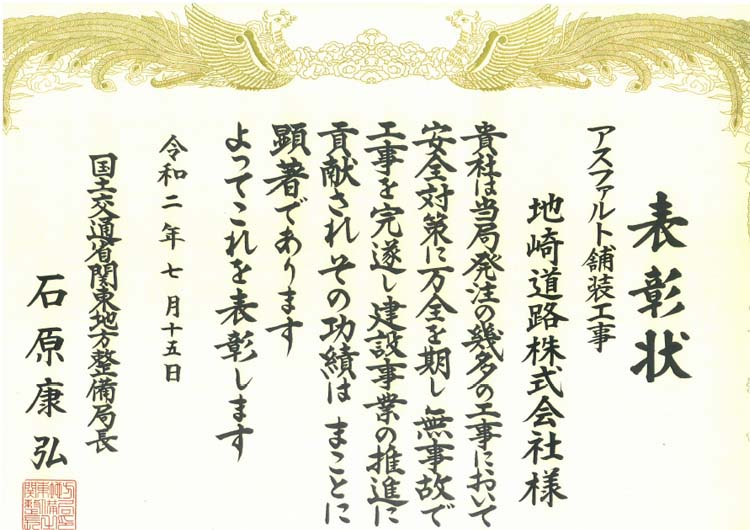 表彰状
アスファルト舗装工事
地崎道路株式会社様
貴社は当局発注の幾多の工事において
安全対策に万全を期し 無事故で
工事を完遂し建設事業の推進に
貢献されその功績は まことに
顕著であります
よってこれを表彰します
令和二年七月十五日
国土交通省関東地方整備局長
石原康弘